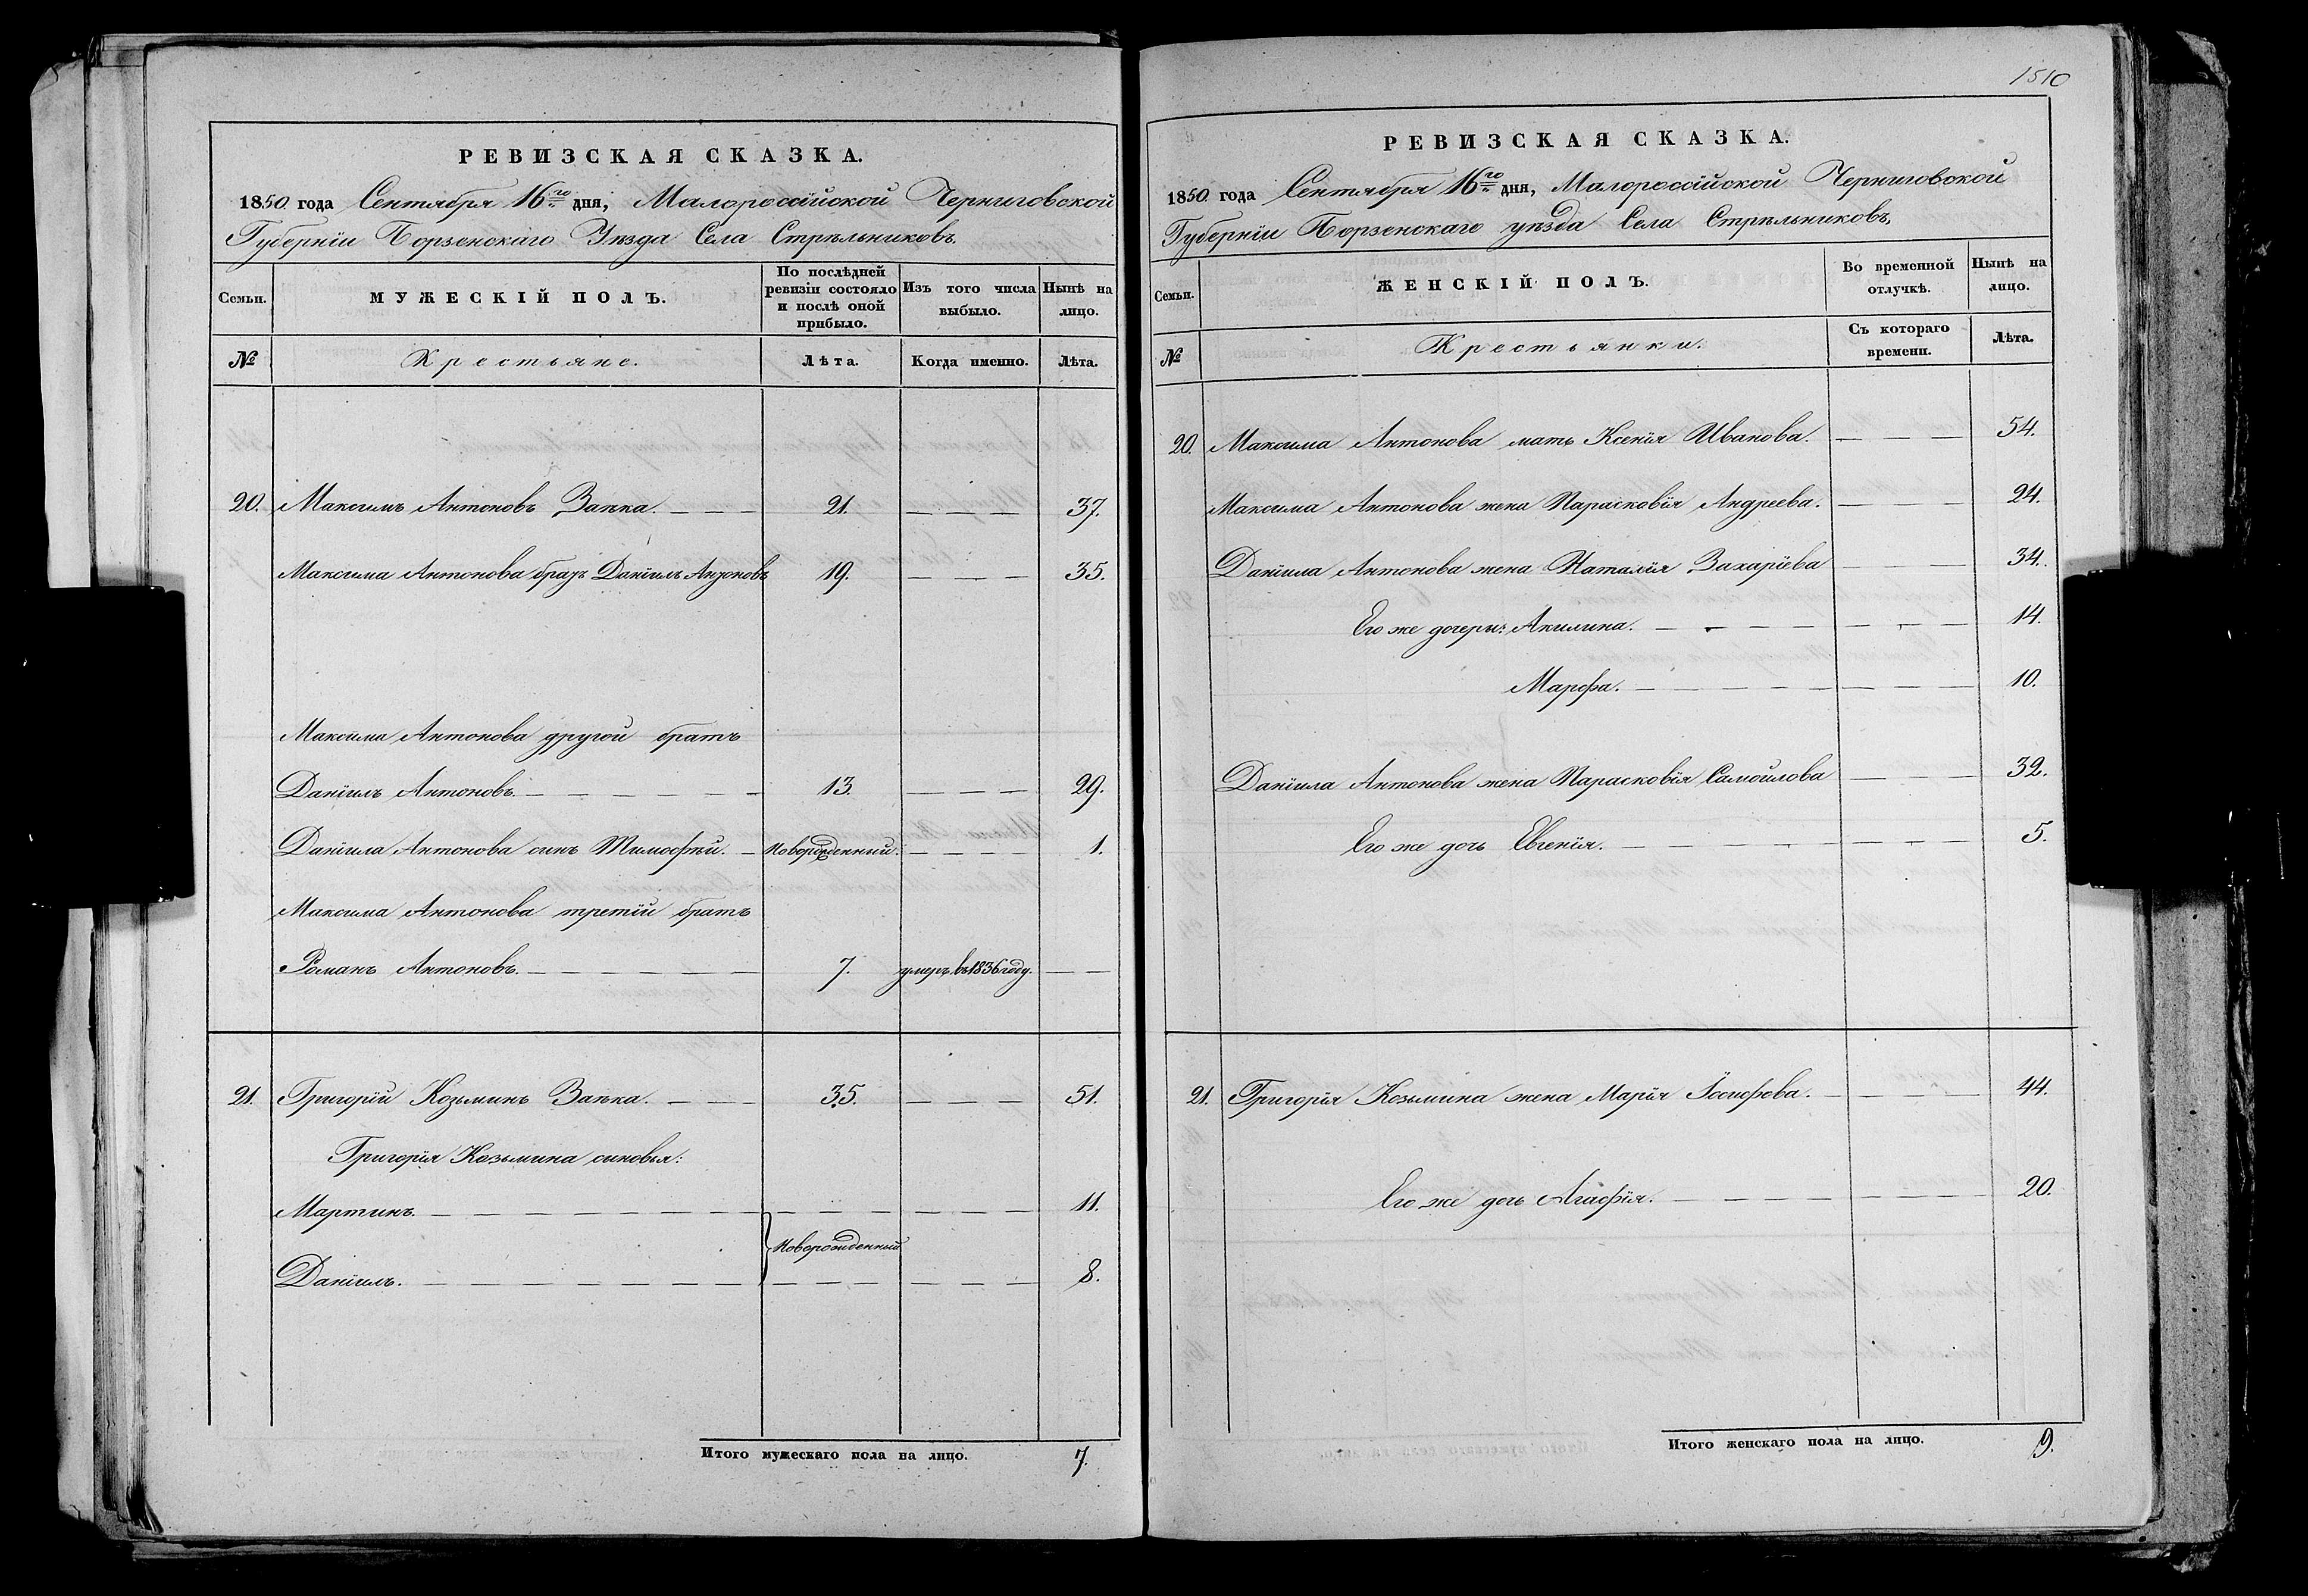 РЕВИЗСКАЯ СКАЗКА.
1850 года Сентября 16го дня, Малороссійской Черниговской
Губерніи Борзенскаго Уѣзда Села Стрѣльниковъ.
Семьи.
МУЖЕСКІЙ ПОЛЪ.
По послѣдней ревизіи состояло и послѣ оной прибыло.
Изъ того числа выбыло.
Нынѣ на лицо.
№ Крестьяне. Лѣта. Когда именно. Лѣта.
20. Максимъ Антоновъ Заѣка. — — — 21. — — — 37.
Максима Антонова братъ Даніилъ Антоновъ 19. — — — 35.
Максима Антонова другой братъ
Даніилъ Антоновъ. — — — — — — 13. — — — 29.
Даніила Антонова синъ Тимофѣй. — Новорожденный. — — — 1.
Максима Антонова третій братъ
Романъ Антоновъ. — — — — — — 7. умеръ въ 1836 году. — —
21. Григорій Козьминъ Заѣка. — — — 35. — — — 51.
Григорія Козьмина синовья:
Мартинъ. — — — — — — — — — — — — 11.
Новорожденный
Даніилъ. — — — — — — — — — — — — 8.
Итого мужескаго пола на лицо. 7.
1510
РЕВИЗСКАЯ СКАЗКА.
1850 года Сентября 16го дня, Малороссійской Черниговской
Губерніи Борзенскаго уѣзда Села Стрѣльниковъ.
Семьи.
ЖЕНСКІЙ ПОЛЪ.
Во временной отлучкѣ.
Нынѣ на лицо.
№ Крестьянки. Съ котораго времени. Лѣта.
20. Максима Антонова мать Ксенія Иванова. — — — 54.
Максима Антонова жена Парасковія Андреева. — — — 24.
Даніила Антонова жена Наталія Захаріева — — — 34.
Его же дочери: Акилина. — — — — — — — 14.
Марфа. — — — — — — — — 10.
Даніила Антонова жена Парасковія Самойлова — — — 32.
Его же дочь Евгенія. — — — — — — — — 5.
21. Григорія Козьмина жена Марія Іосифова. — — — — 44.
Его же дочь Агафія. — — — — — — — — 20.
Итого женскаго пола на лицо. 9.